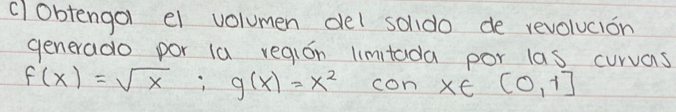 c) Obtenga el volumen del solido de revolución
generado por la región limitada por las curvas
f(x) = √x ; g(x) = x² con x∈ [0,1]